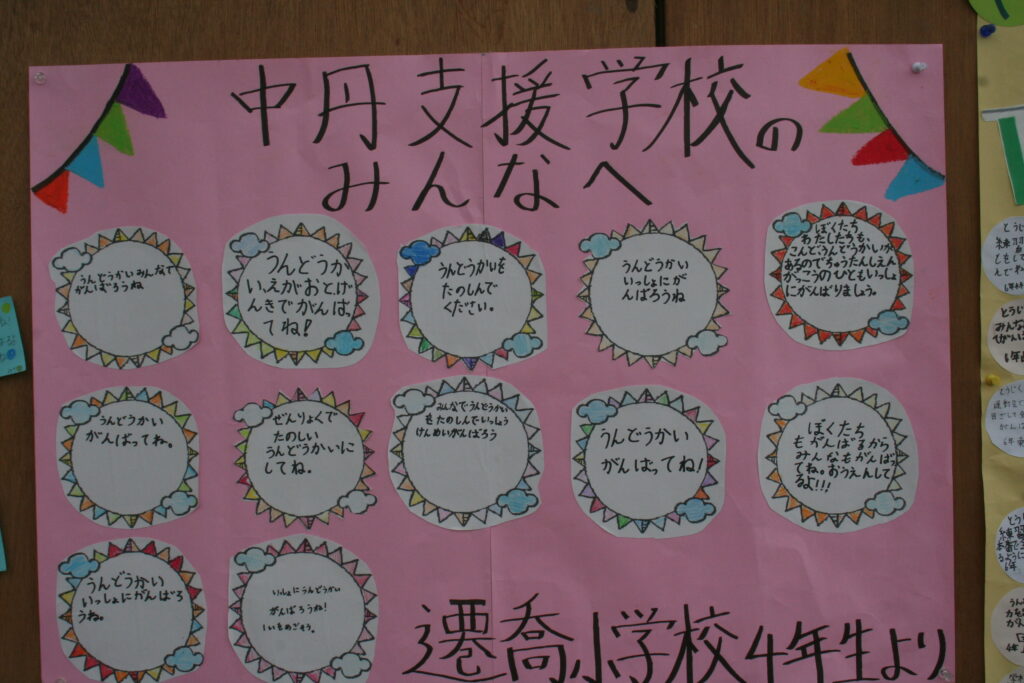 中丹支援学校の
みんなへ
うんどうかいみんなで
がんばろうね
うんどうか
い、えがおとげ
んきでがんばっ
てね!
うんどうかいを
たのしんで
ください。
うんどうかい
いっしょにが
んばろうね
ぼくたち
わたしたちも、
こんどうんどうかいが
あるのでちゅうたんしえん
がっこうのひともいっしょ
にがんばりましょう。
うんどうかい
がんばってね。
ぜんりょくで
たのしい
うんどうかいに
してね。
みんなでうんどうかい
をたのしんでいっしょう
けんめいがんばろう
うんどうかい
がんばってね!
ぼくたち
もがんばるから
みんなもがんばっ
てね。おうえんして
るよ!!!
うんどうかい
いっしょにがんばろ
うね。
いっしょにうんどうかい
がんばろうね!
1いをめざそう。
遷喬小学校4年生より